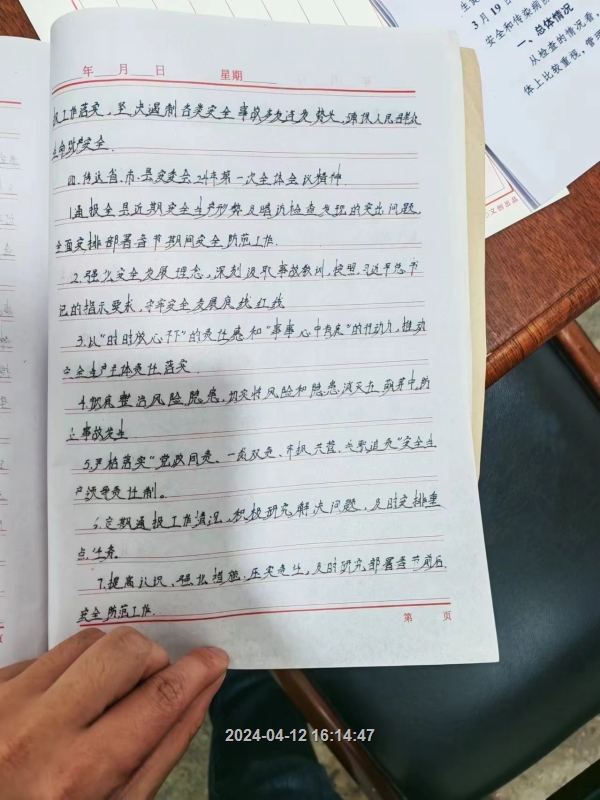 3月19日
安全和传染病防
一、总体情况
从检查的情况看,
体上比较重视,管理
年 月 日 星期
工作落实,坚决遏制各类安全事故多发连发势头,确保人民群众
生命财产安全.
四.传达省、市、县安委会24年第一次全体会议精神.
1.通报全县近期安全生产形势及暗访检查发现的突出问题.
全面安排部署春节期间安全防范工作.
2.强化安全发展理念,深刻汲取事故教训,按照习近平总书
记的指示要求,守牢安全发展底线、红线
3.从“时时放心不下”的责任感和“事事心中有底”的行动力,推动
安全生产主体责任落实.
4.彻底整治风险隐患,切实将风险和隐患消灭在萌芽中,防
止事故发生
5.严格落实“党政同责、一岗双责、齐抓共管、失职追责”安全生
产领导责任制。
6.定期通报工作情况,积极研究解决问题,及时安排重
点任务.
7.提高认识、强化措施、压实责任,及时研究部署春节前后
安全防范工作.
第 页
文创出品
2024-04-12 16:14:47